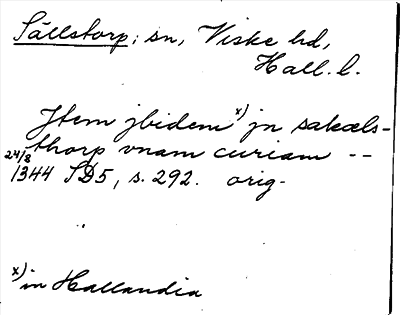 Sällstorp, sn, Viske hd,
Hall. l.
Jtem jbidem x) jn sakæls-
thorp vnam curiam --
24/8
1344 SD5, s. 292. orig-
x) in Hallandia